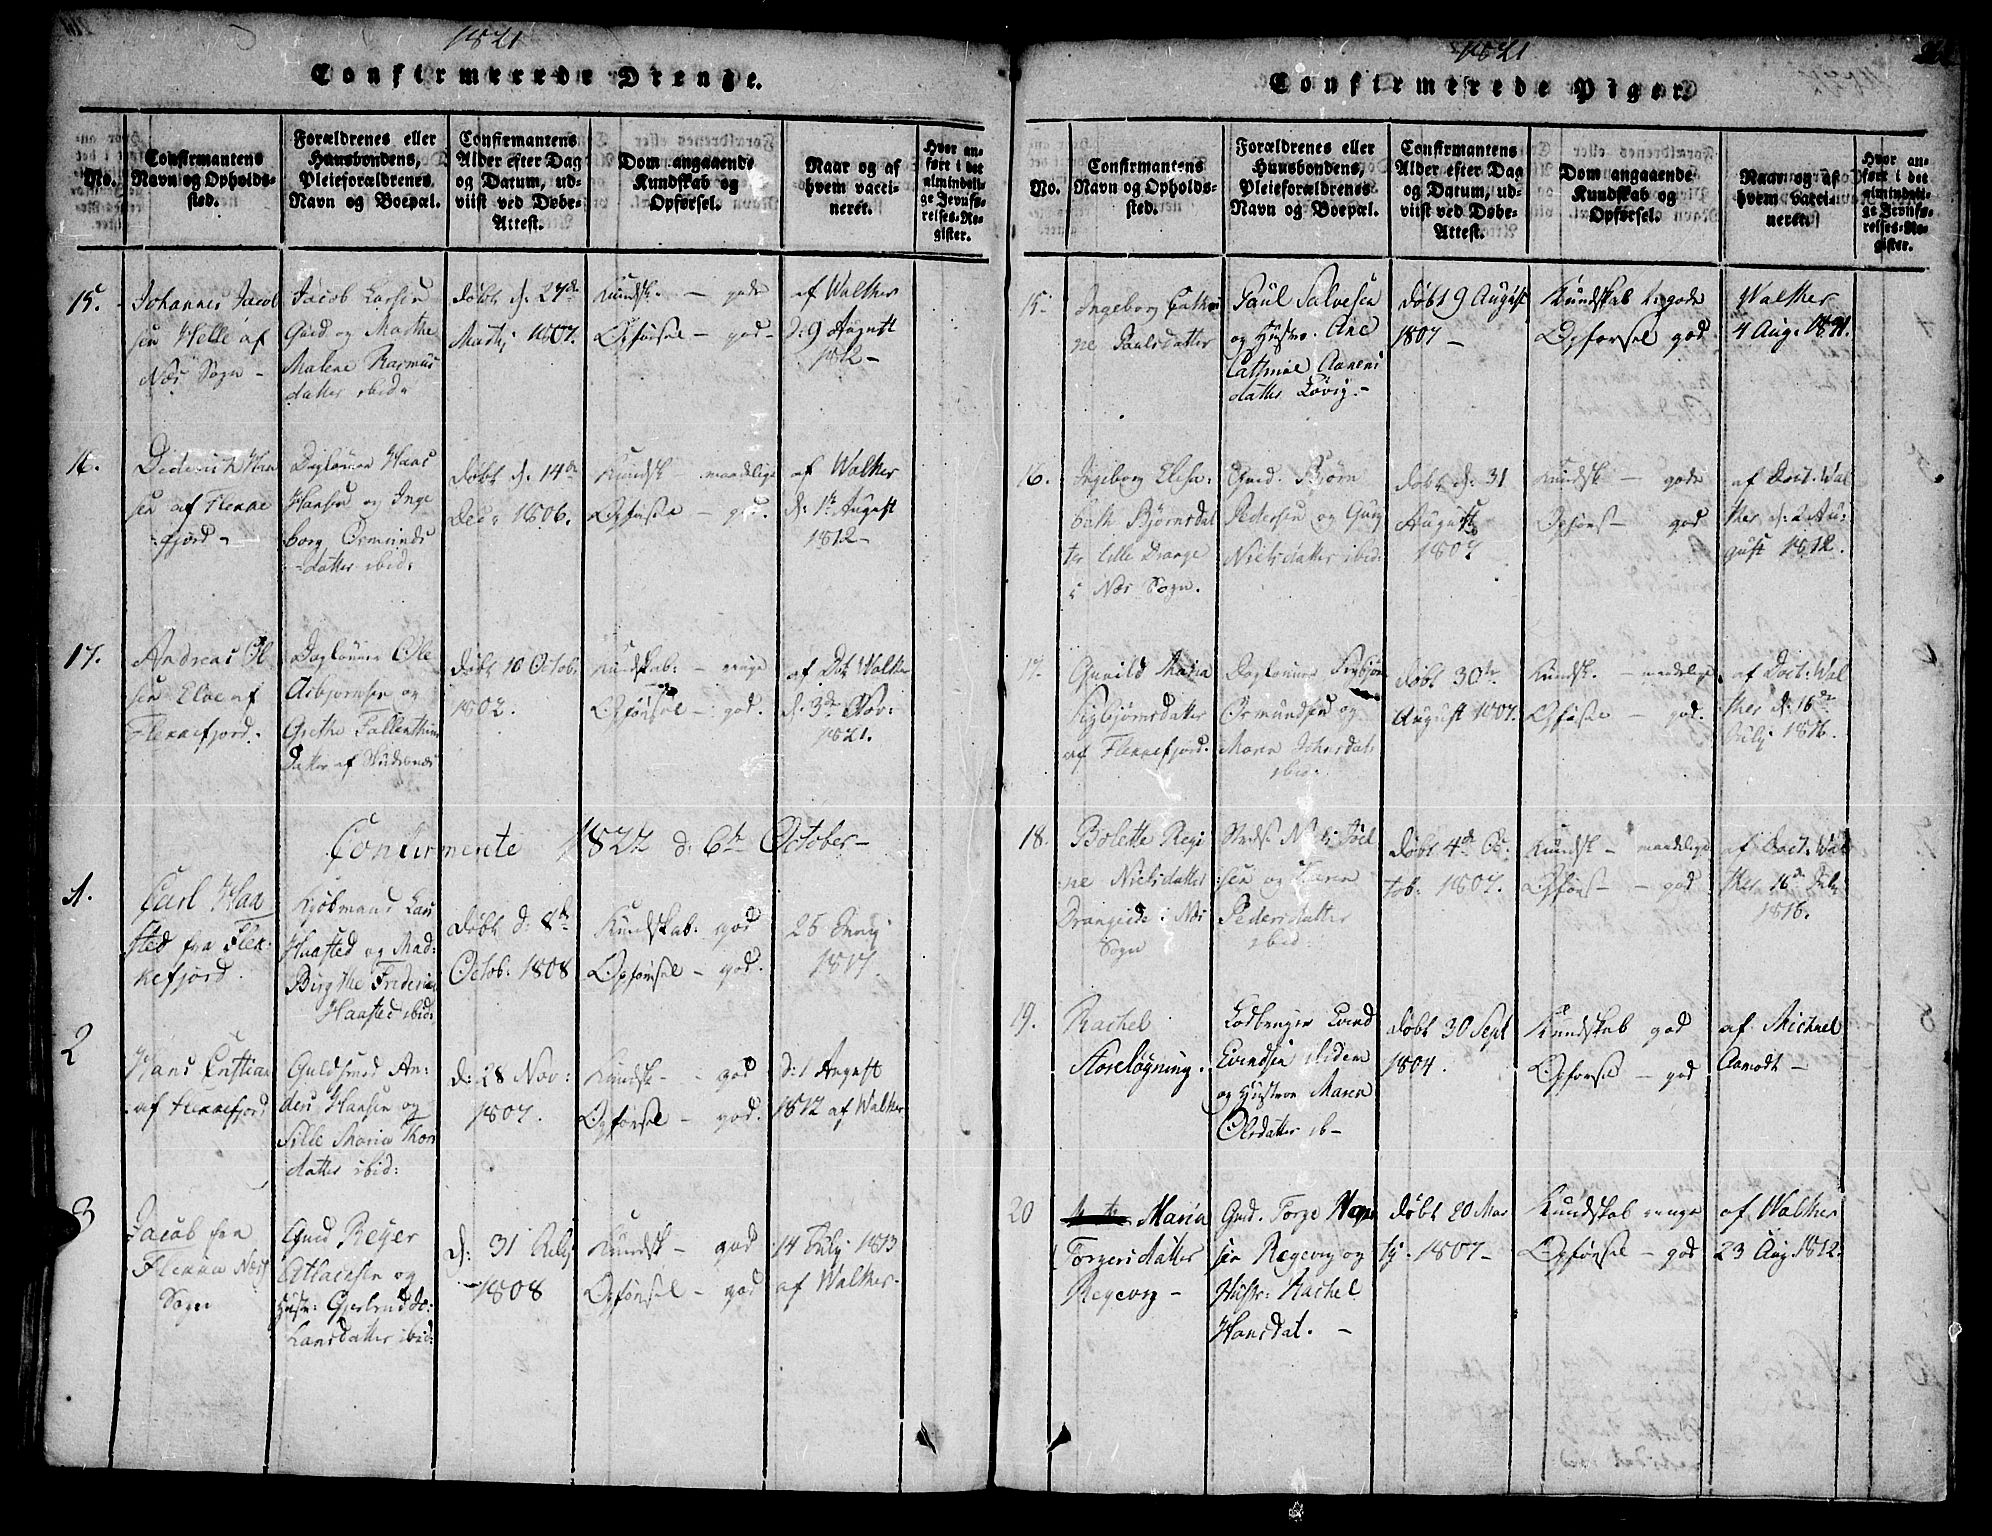 1821
Confirmerede Drenge.
No.
Confirmantens
Navn og Opholds-
sted.
Forældrenes eller
Huusbondens,
Pleieforældrenes
Navn og Boepæl.
Confirmantens
Alder efter Dag
og Datum, ud-
viist ved Døbe-
Attest.
Dom angaaende
Kundskab og
Opførsel.
Naar og af
hvem vacci-
neret.
Hvor an-
ført i det
almindeli-
ge Jevnfø-
relses-Re-
gister.
15.
Johannes Jacob
sen Helle af
Næs Sogn -
Jacob Larsen
Gaed og Marthe
Malene Rasmus
datter ibid
Døbt d. 27de
Martj 1807.
Kundsk. - gode
Opførsel - god-
af Walker
d: 9 August
1812-
16.
Diderich Han
sen af Flekke
fjord -
Daglønner Hans
Hansen og Inge
borg Ormunds
datter ibid:
Døbt d. 14de
Dec. 1806.
Kundsk maadelige
Opførsel - god.
af Walker
d: 1t August
1812-
17.
Andreas Ol
sen Eloe af
Flekkefjord.
Daglønner Ole
Asbjørnsen og
Grethe
Datter af
Døbt 10 Octob:
1802.
Kundskab: - ringe
Opførsel - god.
af Dok Walker
d: 3de Nov:
1821.
Confirmerte 1822 d: 6te October-
1.
Carl Haa
sted fra Flek-
kefjord.
Kjøbmand Lars
Haasted og Mad:
Birgithe Frederica
Haasted ibid:
Døbt d: 8de
Octob: 1808
Kundskab: god
Opførsel - god.
1817.
2
Hans Cristian
af Flekkefjord
Guldsmed An-
ders Hansen og
Sille Maria Thors
datter ibid:
d: 28 Nov:
1807.
Kundsk - - god
Opførsel - god.
d: 1 August
1812 af Walker
3
Jacob fra
Flekke Næs
Sogn
Gmd Reyer
Atlacsen og
Hustr:
Larsdatter ibid:
d: 31
1808
Kundsk - god
Opførsel - god
14 July 1813
af Walker-
1821
Confirmerede Piger.
No.
Confirmantens
Navn og Opholds-
sted.
Forældrenes eller
Huusbondens,
Pleieforældrenes
Navn og Boepæl.
Confirmantens
Alder efter Dag
og Datum, ud-
viist ved Døbe-
Attest.
Dom angaaende
Kundskab og
Opførsel.
Naar og af
hvem vacci-
neret.
Hvor an-
ført i det
almindeli-
ge Jevnfø-
relses-Re-
gister.
15.
Ingeborg Cathri
ne Paulsdatter
Paul Salvesen
og Hustroe Ane
Cathrine Aanens
datter Løvig.-
døbt 9 August
1807 -
Kundskab: gode
Opførsel god
Walker
4 Aug.
16.
Ingeborg Elisa-
beth Bjørnsdat
ter Lille Drange
i Næs Sogn.
Gmd. Bjørn
Pedersen og Guri
Nielsdatter ibid:
døbt d: 31
August
1807
Kundsk - gode
Opførs - god
af Doct. Wal
ker d: 2 Au-
gust 1812.
17.
Gunild Maria
Sigbjørnsdatter
af Flekkefjord.
Daglønner Sigbjørn
Ormundsen og
Maren Johnsdat:
ibid:
døbt 30te
August 1807.
Kundsk. - maadelige
Opførsel - god.
af Doct: Wal
ker d: 16de
July 1816.
18.
Bolette Regi
ne Nielsdatter
Drangeide i Næs
Sogn
Niels Joel
sen og Karen
Pedersdatter
ibid:
Døbt 4de Oc-
tob: 1807.
Kundsk - maadelige
Opførs - god
af Doct: Wal
ker 16de July
1816.
19.
Rachel
Storeløgning.
Lodbruger Evind
Evindsen ibidem
og Hustroe Maren
Olsdatter ib-
døbt 30 Sept
1804.
Kundskab god
Opførsel - god
af Michael
Aamodt -
20
Maria
Torgersdatter
Regevig -
Gmd. Torge
sen Regevig og
Hustr: Rachel
Hansdat. -
døbt 20 Mar
tj. 1807-
Kundskab ringe
Opførsel - god
af Walker
23 Aug. 1812.